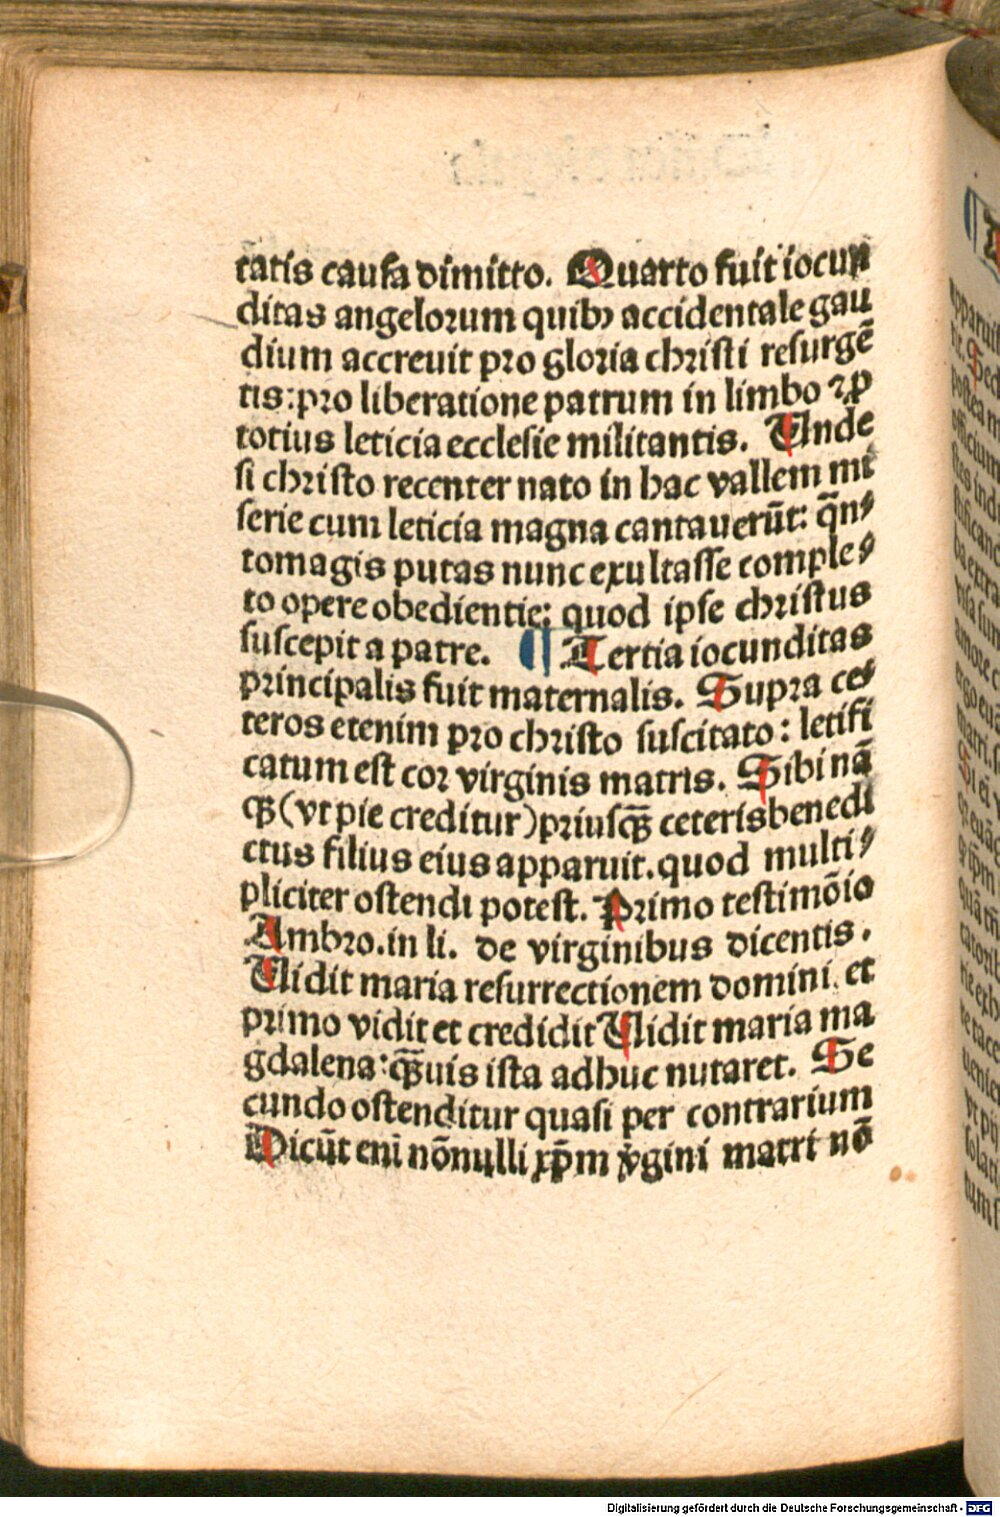 tatis causa dimitto. Quarto fuit iocun
ditas angelorum quibꝰ accidentale gau
dium accreuit pro gloria christi resurgē
tis: pro liberatione patrum in limbo ⁊ ꝓ
totius leticia ecclesie militantis. Unde
si christo recenter nato in hac vallem mi
serie cum leticia magna cantauerūt: q̄n⸗
tomagis putas nunc exultasse comple⸗
to opere obedientie: quod ipse christus
suscepit a patre. ¶ Tertia iocunditas
principalis fuit maternalis. Supra ce⸗
teros etenim pro christo suscitato: letifi
catum est cor virginis matris. Sibi nā
qꝫ (vt pie creditur) priusqꝫ̄ ceteris benedi
ctus filius eius apparuit. quod multi⸗
pliciter ostendi potest. Primo testimōio
Ambro. in li. de virginibus dicentis.
Uidit maria resurrectionem domini. et
primo vidit et credidit Uidit maria ma
gdalena: qꝫ̄uis ista adhuc nutaret. Se
cundo ostenditur quasi per contrarium
Dicūt eni nōnulli xp̄m v̇gini matri nō
Digitalisierung gefördert durch die Deutsche Forschungsgemeinschaft - DFG